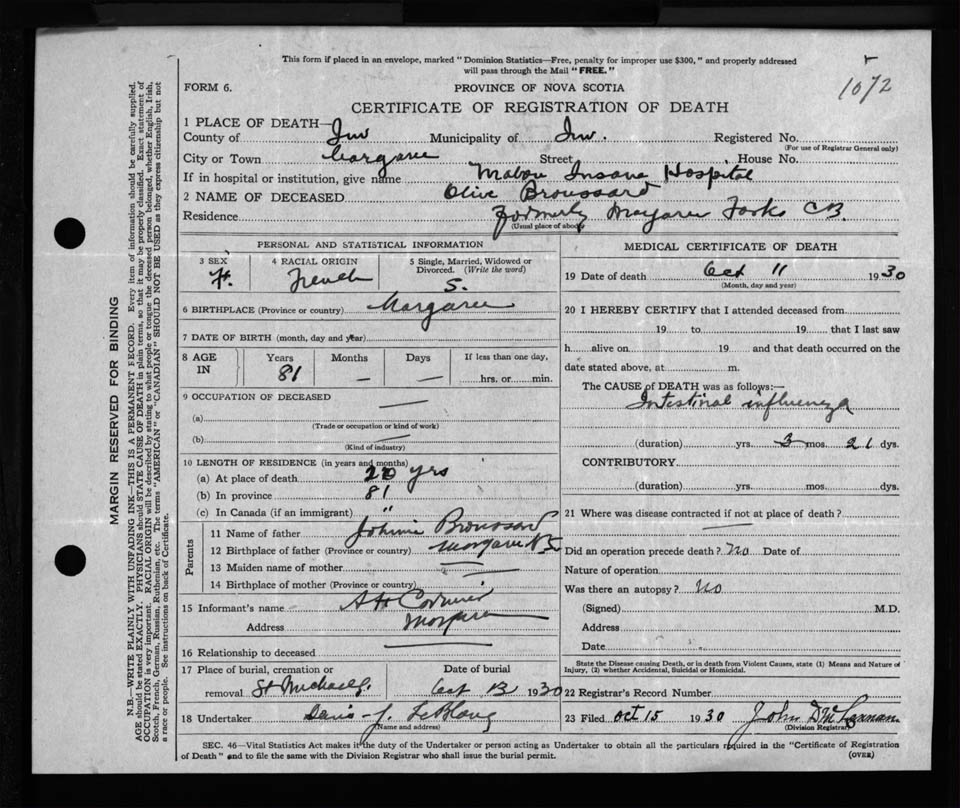 This form if placed in an envelope, marked "Dominion Statistics—Free, penalty for improper use $300," and properly addressed
will pass through the Mail "FREE."
1072
FORM 6.
PROVINCE OF NOVA SCOTIA
CERTIFICATE OF REGISTRATION OF DEATH
1 PLACE OF DEATH—
County of Inv Municipality of Inv. Registered No.
(For use of Registrar General only)
City or Town Street House No.
If in hospital or institution, give name Mabou Insane Hospital
2 NAME OF DECEASED Olive Broussard
Residence Formerly Margaree Forks CB.
(Usual place of abode)
PERSONAL AND STATISTICAL INFORMATION
3 SEX F.
4 RACIAL ORIGIN French
5 Single, Married, Widowed or Divorced. (Write the word) S.
6 BIRTHPLACE (Province or country) Margaree
7 DATE OF BIRTH (month, day and year)
8 AGE IN Years Months Days If less than one day,
81 — — hrs. or min.
9 OCCUPATION OF DECEASED —
(a)
(Trade or occupation or kind of work)
(b) —
(Kind of industry)
10 LENGTH OF RESIDENCE (in years and months)
(a) At place of death 20 yrs
(b) In province 81
(c) In Canada (if an immigrant) "
Parents
11 Name of father Johnnie Broussard
12 Birthplace of father (Province or country) Margaree NS
13 Maiden name of mother —
14 Birthplace of mother (Province or country) —
15 Informant's name A H Cormier
Address Margaree
16 Relationship to deceased —
17 Place of burial, cremation or Date of burial
removal St Michaels. Oct 13 1930
18 Undertaker LeBlanc
(Name and address)
MEDICAL CERTIFICATE OF DEATH
19 Date of death Oct 11 1930
(Month, day and year)
20 I HEREBY CERTIFY that I attended deceased from
19 to 19 that I last saw
h alive on 19 and that death occurred on the
date stated above, at m.
The CAUSE of DEATH was as follows:—
Intestinal influenza
(duration) yrs. 3 mos. 21 dys.
CONTRIBUTORY
(duration) yrs. mos. dys.
21 Where was disease contracted if not at place of death?
—
Did an operation precede death? No Date of
Nature of operation
Was there an autopsy? No
(Signed) M.D.
Address
Date
State the Disease causing Death, or in death from Violent Causes, state (1) Means and Nature of
Injury, (2) whether Accidental, Suicidal or Homicidal.
22 Registrar's Record Number
23 Filed Oct 15 1930 John D McLennan
(Division Registrar)
SEC. 46—Vital Statistics Act makes it the duty of the Undertaker or person acting as Undertaker to obtain all the particulars required in the "Certificate of Registration
of Death" and to file the same with the Division Registrar who shall issue the burial permit. (OVER)
MARGIN RESERVED FOR BINDING
N.B.—WRITE PLAINLY WITH UNFADING INK—THIS IS A PERMANENT RECORD. Every item of information should be carefully supplied.
AGE should be stated EXACTLY. PHYSICIANS should STATE CAUSE OF DEATH in plain terms, so that it may be properly classified. Exact statement of
OCCUPATION is very important. RACIAL ORIGIN will be described by stating to what people or tongue the deceased person belonged, whether English, Irish,
Scotch, French, German, Russian, Ruthenian, etc. The terms "AMERICAN" or "CANADIAN" SHOULD NOT BE USED as they express citizenship but not
a race or people. See instructions on back of Certificate.